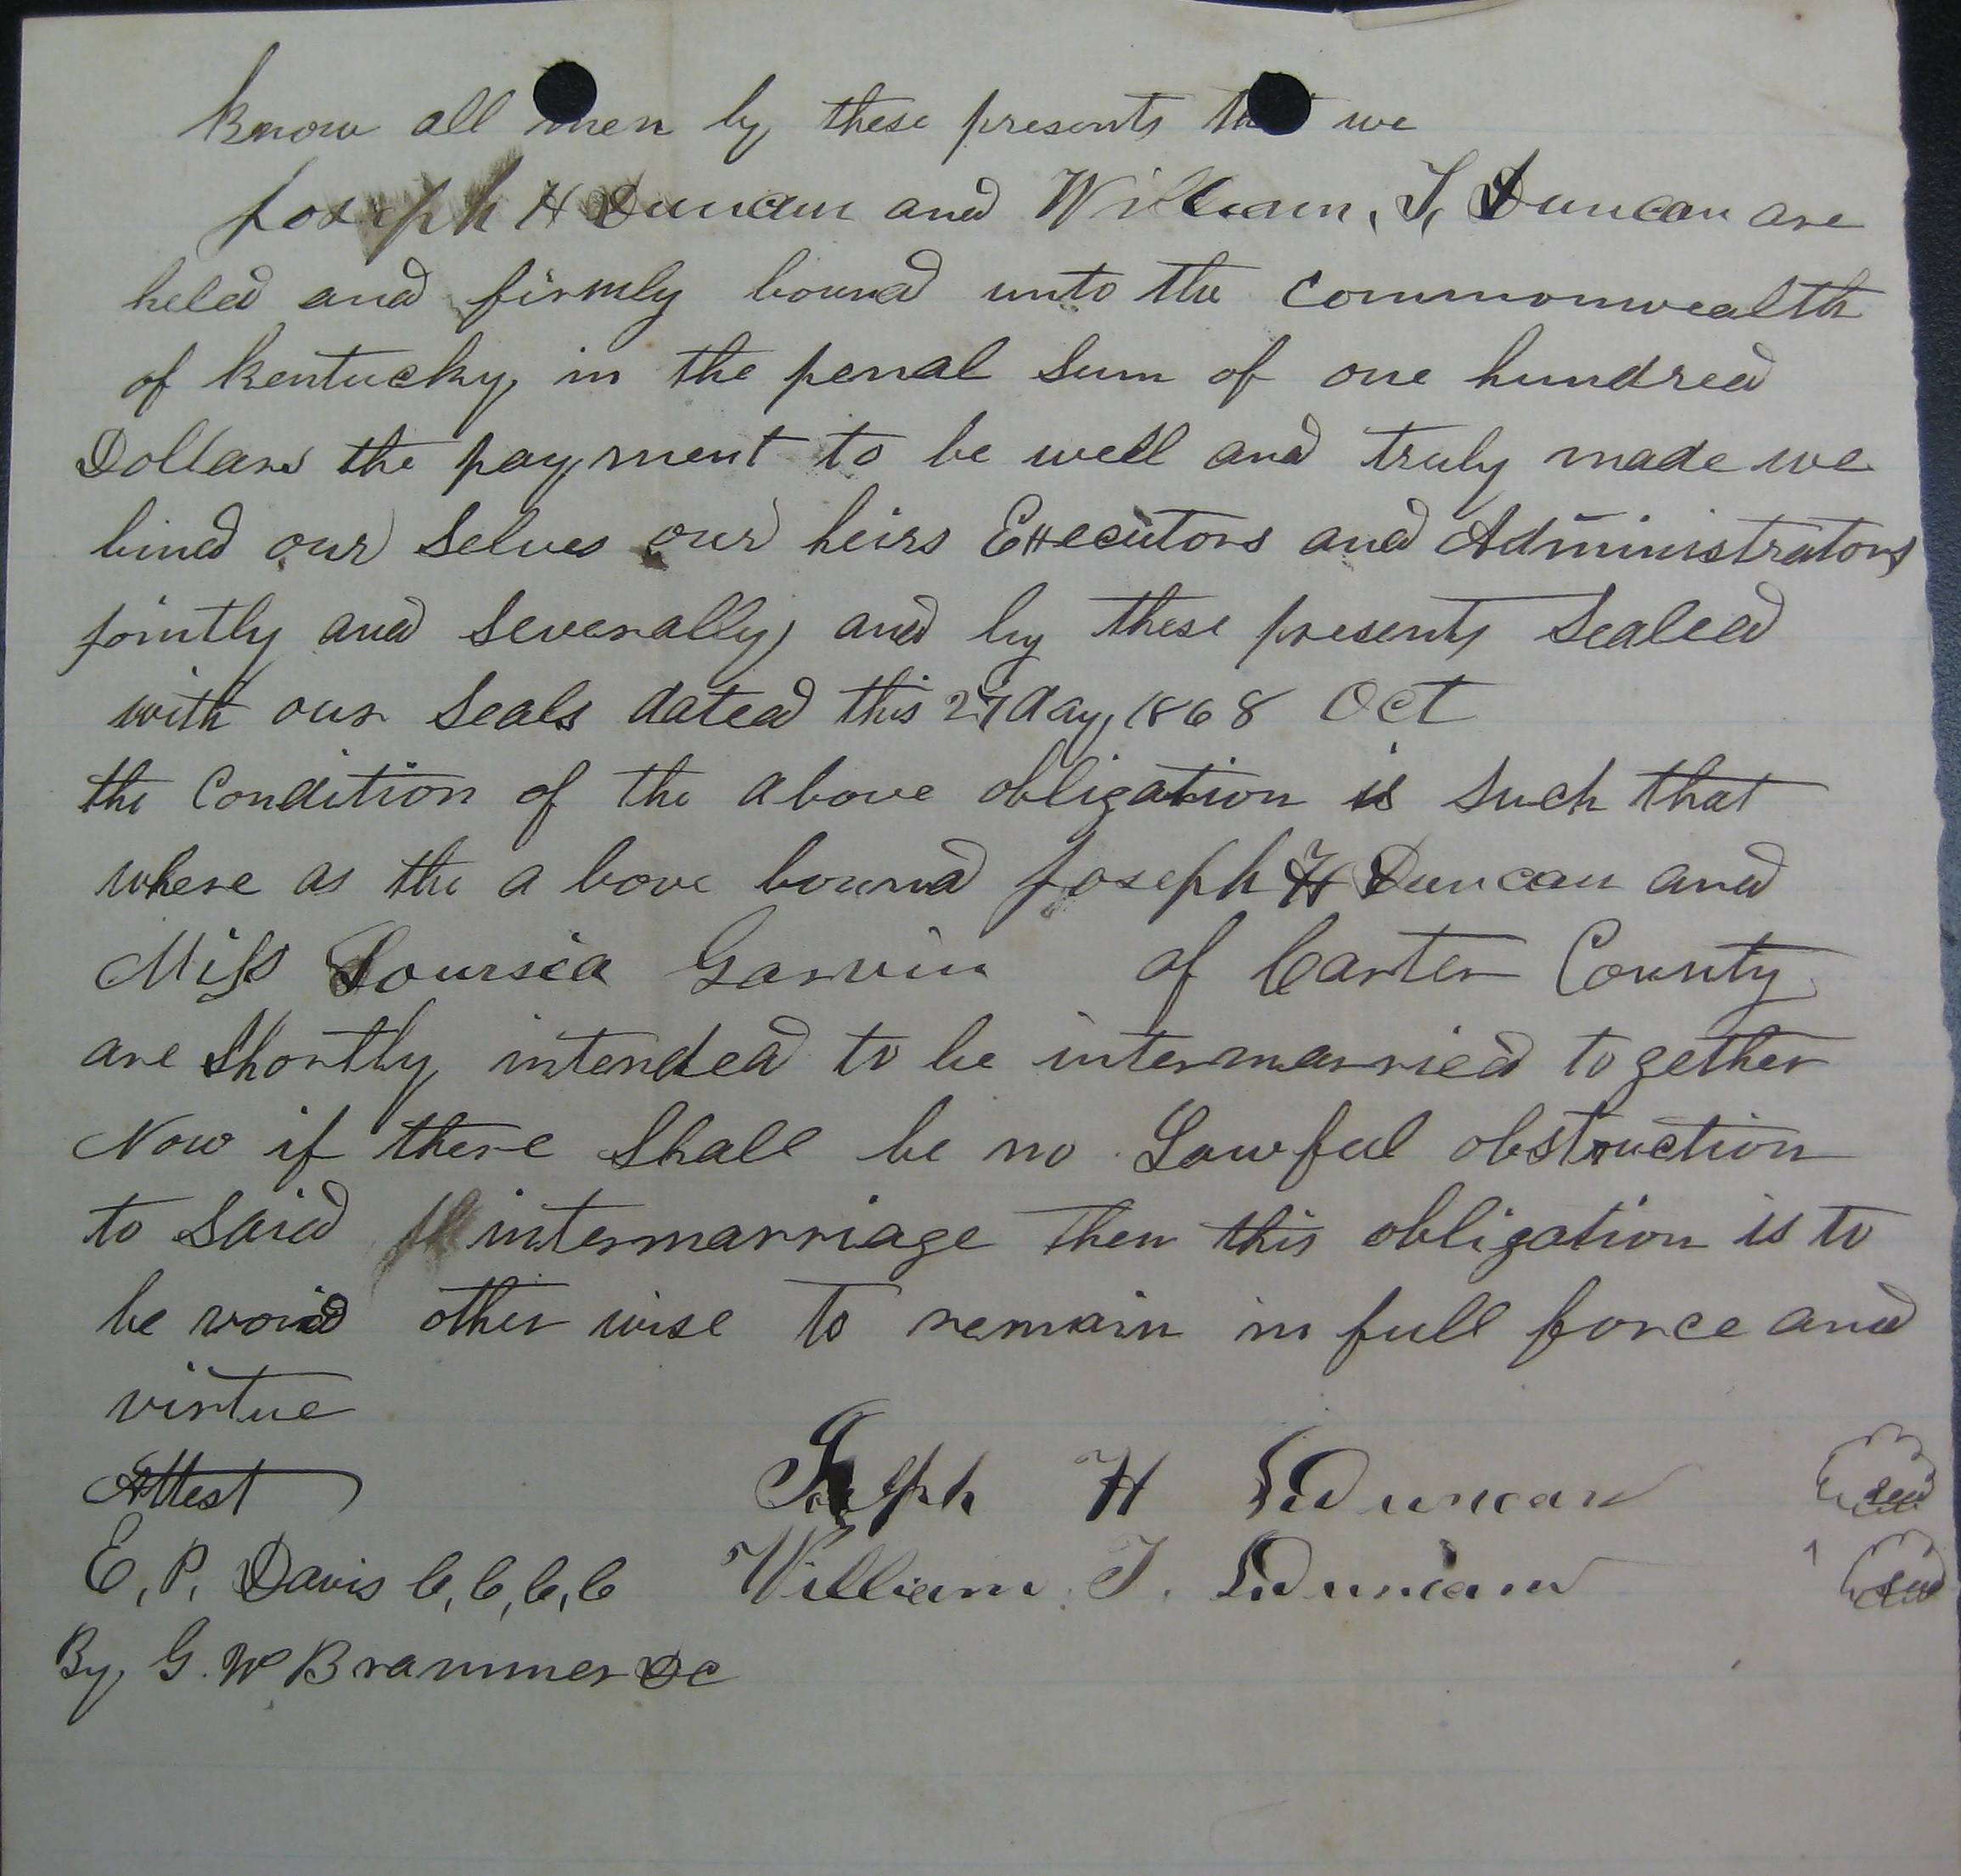 Know all men by these presents that we
Joseph H Duncan and William, T, Duncan are
held and firmly bound unto the Commonwealth
of Kentucky in the penal Sum of one hundred
Dollars the payment to be well and truly made we
bind our Selves our heirs Executors and Administrators
jointly and Severally, and by these presents Sealed
with our Seals dated this 27 day, 1868 Oct
the Condition of the above obligation is Such that
where as the a bove bound Joseph H Duncan and
Miss Loursia Garvin of Carter County
are Shortly intended to be intermarried together
Now if there Shall be no Lawful obstruction
to Said intermarriage then this obligation is to
be void other wise to remain in full force and
virtue
Attest
Joseph H Duncan Seal
E, P, Davis C, C, C, C William T. Duncan Seal
By G. W Brammer DC